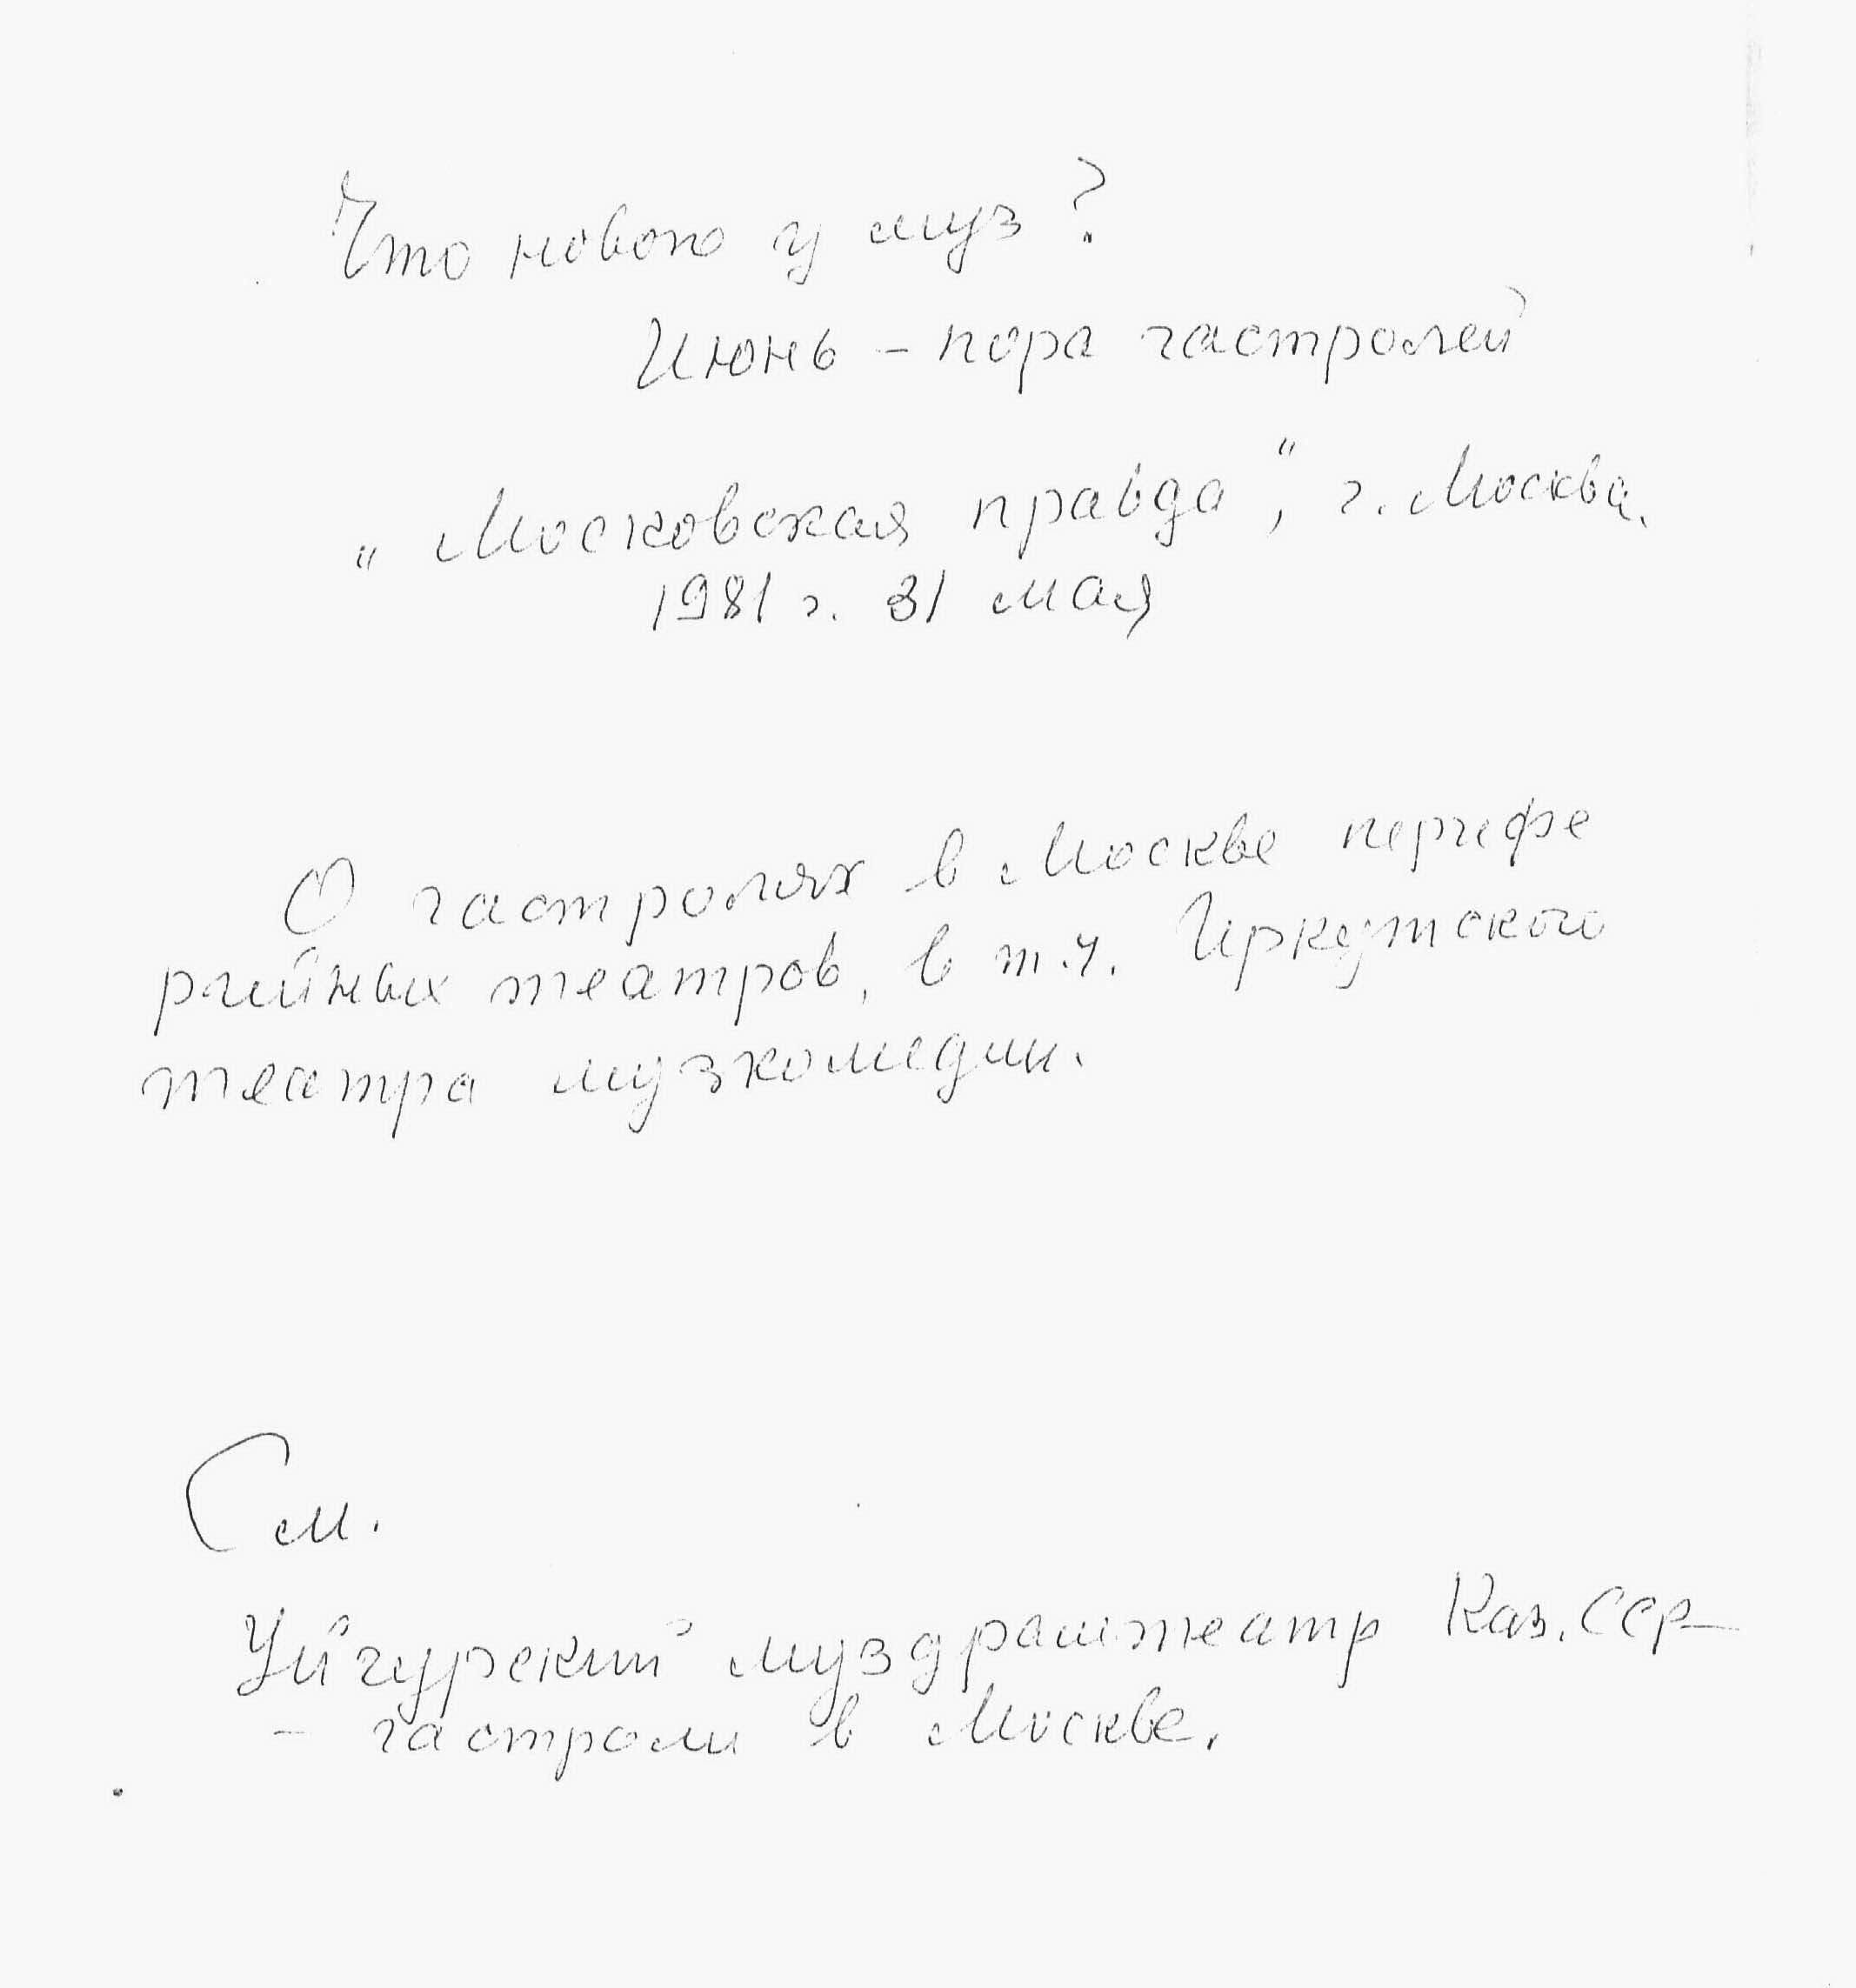 Что нового у муз?
Июнь – пора гастролей
„Московская правда", г. Москва.
1981 г. 31 мая
О гастролях в Москве перифе
рийных театров, в т.ч. Иркутского
театра музкомедии.
См.
Уйгурский муздрамтеатр Каз.ССР –
– гастроли в Москве.